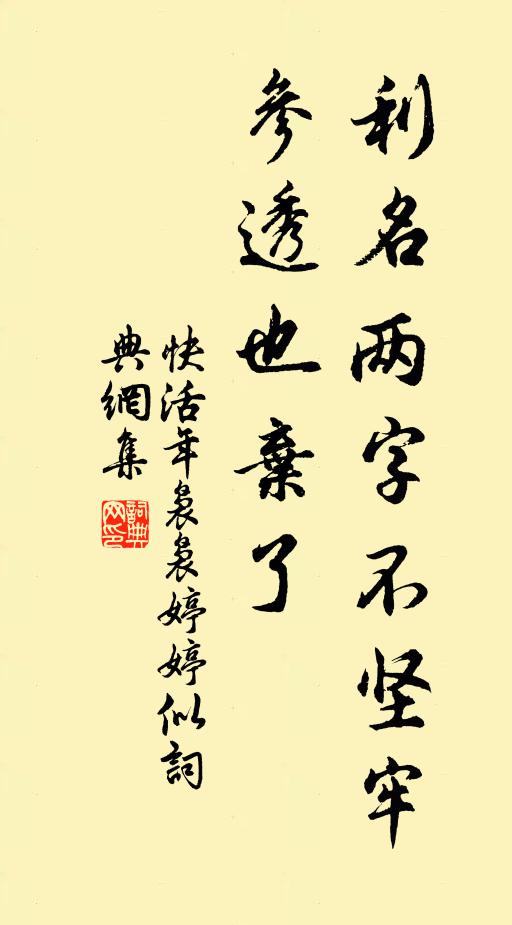 利名两字不坚牢
參透也棄了
快活年袅袅婷婷似詞
典網集
詞典网印